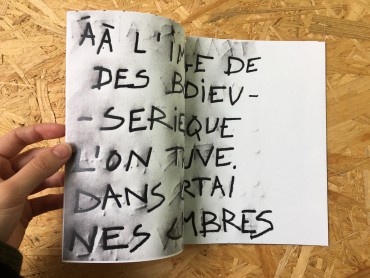 ÀÀ L'IN-E DE
DES BDIEU-
-SERIEQUE
L'ON TNVE.
DANS RTAI
NES MBRES